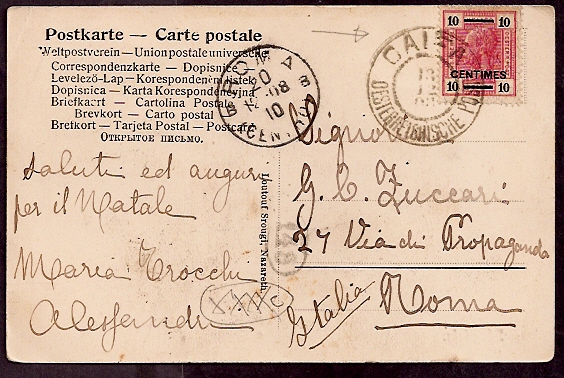 Postkarte — Carte postale
Weltpostverein — Union postale universelle
Correspondenzkarte — Dopisnice
Levelező-Lap — Korespondenční lístek
Dopisnica — Karta Korespondencyjna
Briefkaart — Cartolina Postale
Brevkort — Carto postal
Brefkort — Tarjeta Postal — Postcard
Открытое письмо.
ROMA
08
10
CENTRO
CAIFA
OESTERREICHISCHE POST
10 10
CENTIMES
10 10
Saluti ed auguri
per il Natale
Maria Trocchi
Alessandri
Loutouf Srougi, Nazareth
Signor
G. C. Zuccari
27 Via di Propaganda
Roma
Italia